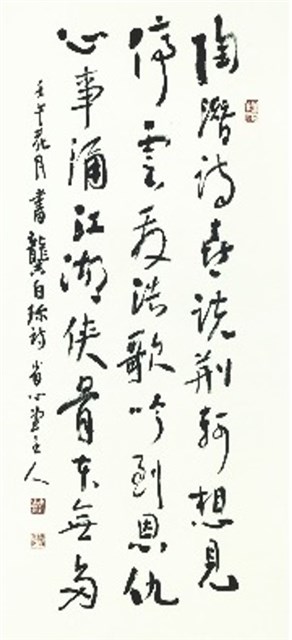 陶潛诗喜说荆轲想見
停雲发浩歌吟到恩仇
心事涌江湖侠骨無多
壬午花月書龔自珍诗 省心堂主人